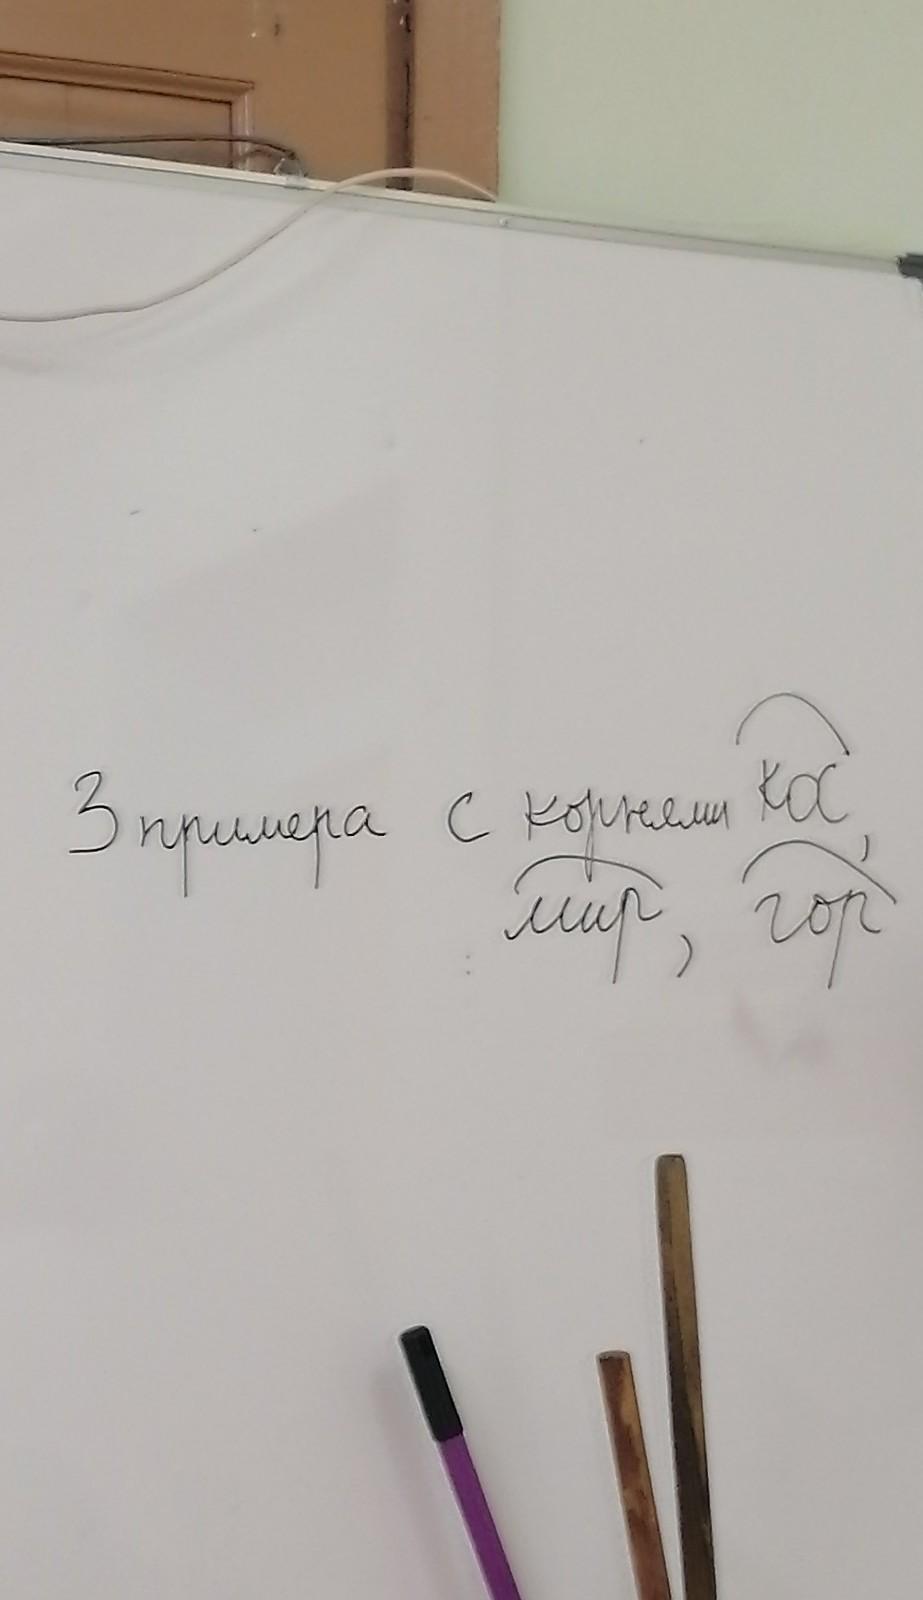 3 примера с корнями кос,
мир, гор